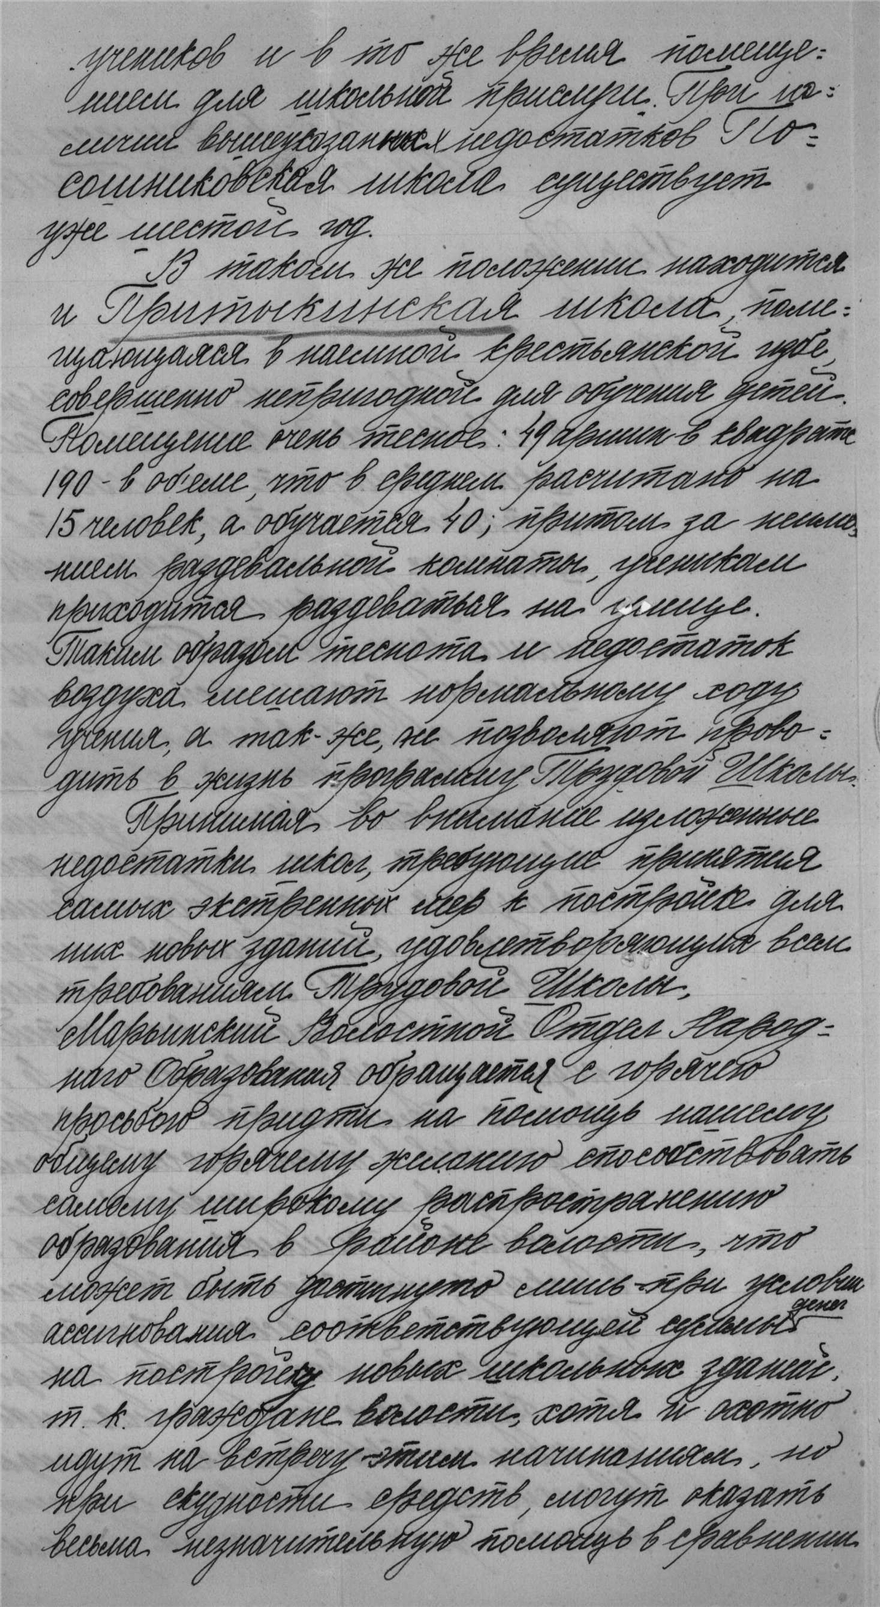 учеников и в то же время помеще=
нием для школьной прислуги. При на=
личии вышеуказанных недостатков По=
сошниковская школа существует
уже шестой год.
В таком же положении находится
и Притыкинская школа, поме=
щающаяся в наемной крестьянской избе,
совершенно непригодной для обучения детей.
Помещение очень тесное: 49 аршин в квадрате
190 - в об'еме, что в среднем расчитано на
15 человек, а обучается 40; притом за неиме=
нием раздевальной комнаты, ученикам
приходится раздеваться на улице.
Таким образом теснота и недостаток
воздуха мешают нормальному ходу
учения, а так-же, не позволяют прово=
дить в жизнь программу Трудовой Школы.
Принимая во внимание изложенные
недостатки школ, требующие принятия
самых экстренных мер к постройке для
них новых зданий, удовлетворяющих всем
требованиям Трудовой Школы,
Марьинский Волостной Отдел Народ=
ного Образования обращается с горячею
просьбою придти на помощь нашему
общему горячему желанию способствовать
самому широкому распространению
образования в районе волости, что
может быть достигнуто лишь при условии
ассигнования соответствующей суммы денег
на постройку новых школьных зданий,
т. к. граждане волости, хотя и охотно
идут на встречу этим начинаниям, но
при скудности средств, могут оказать
весьма незначительную помощь в сравнении